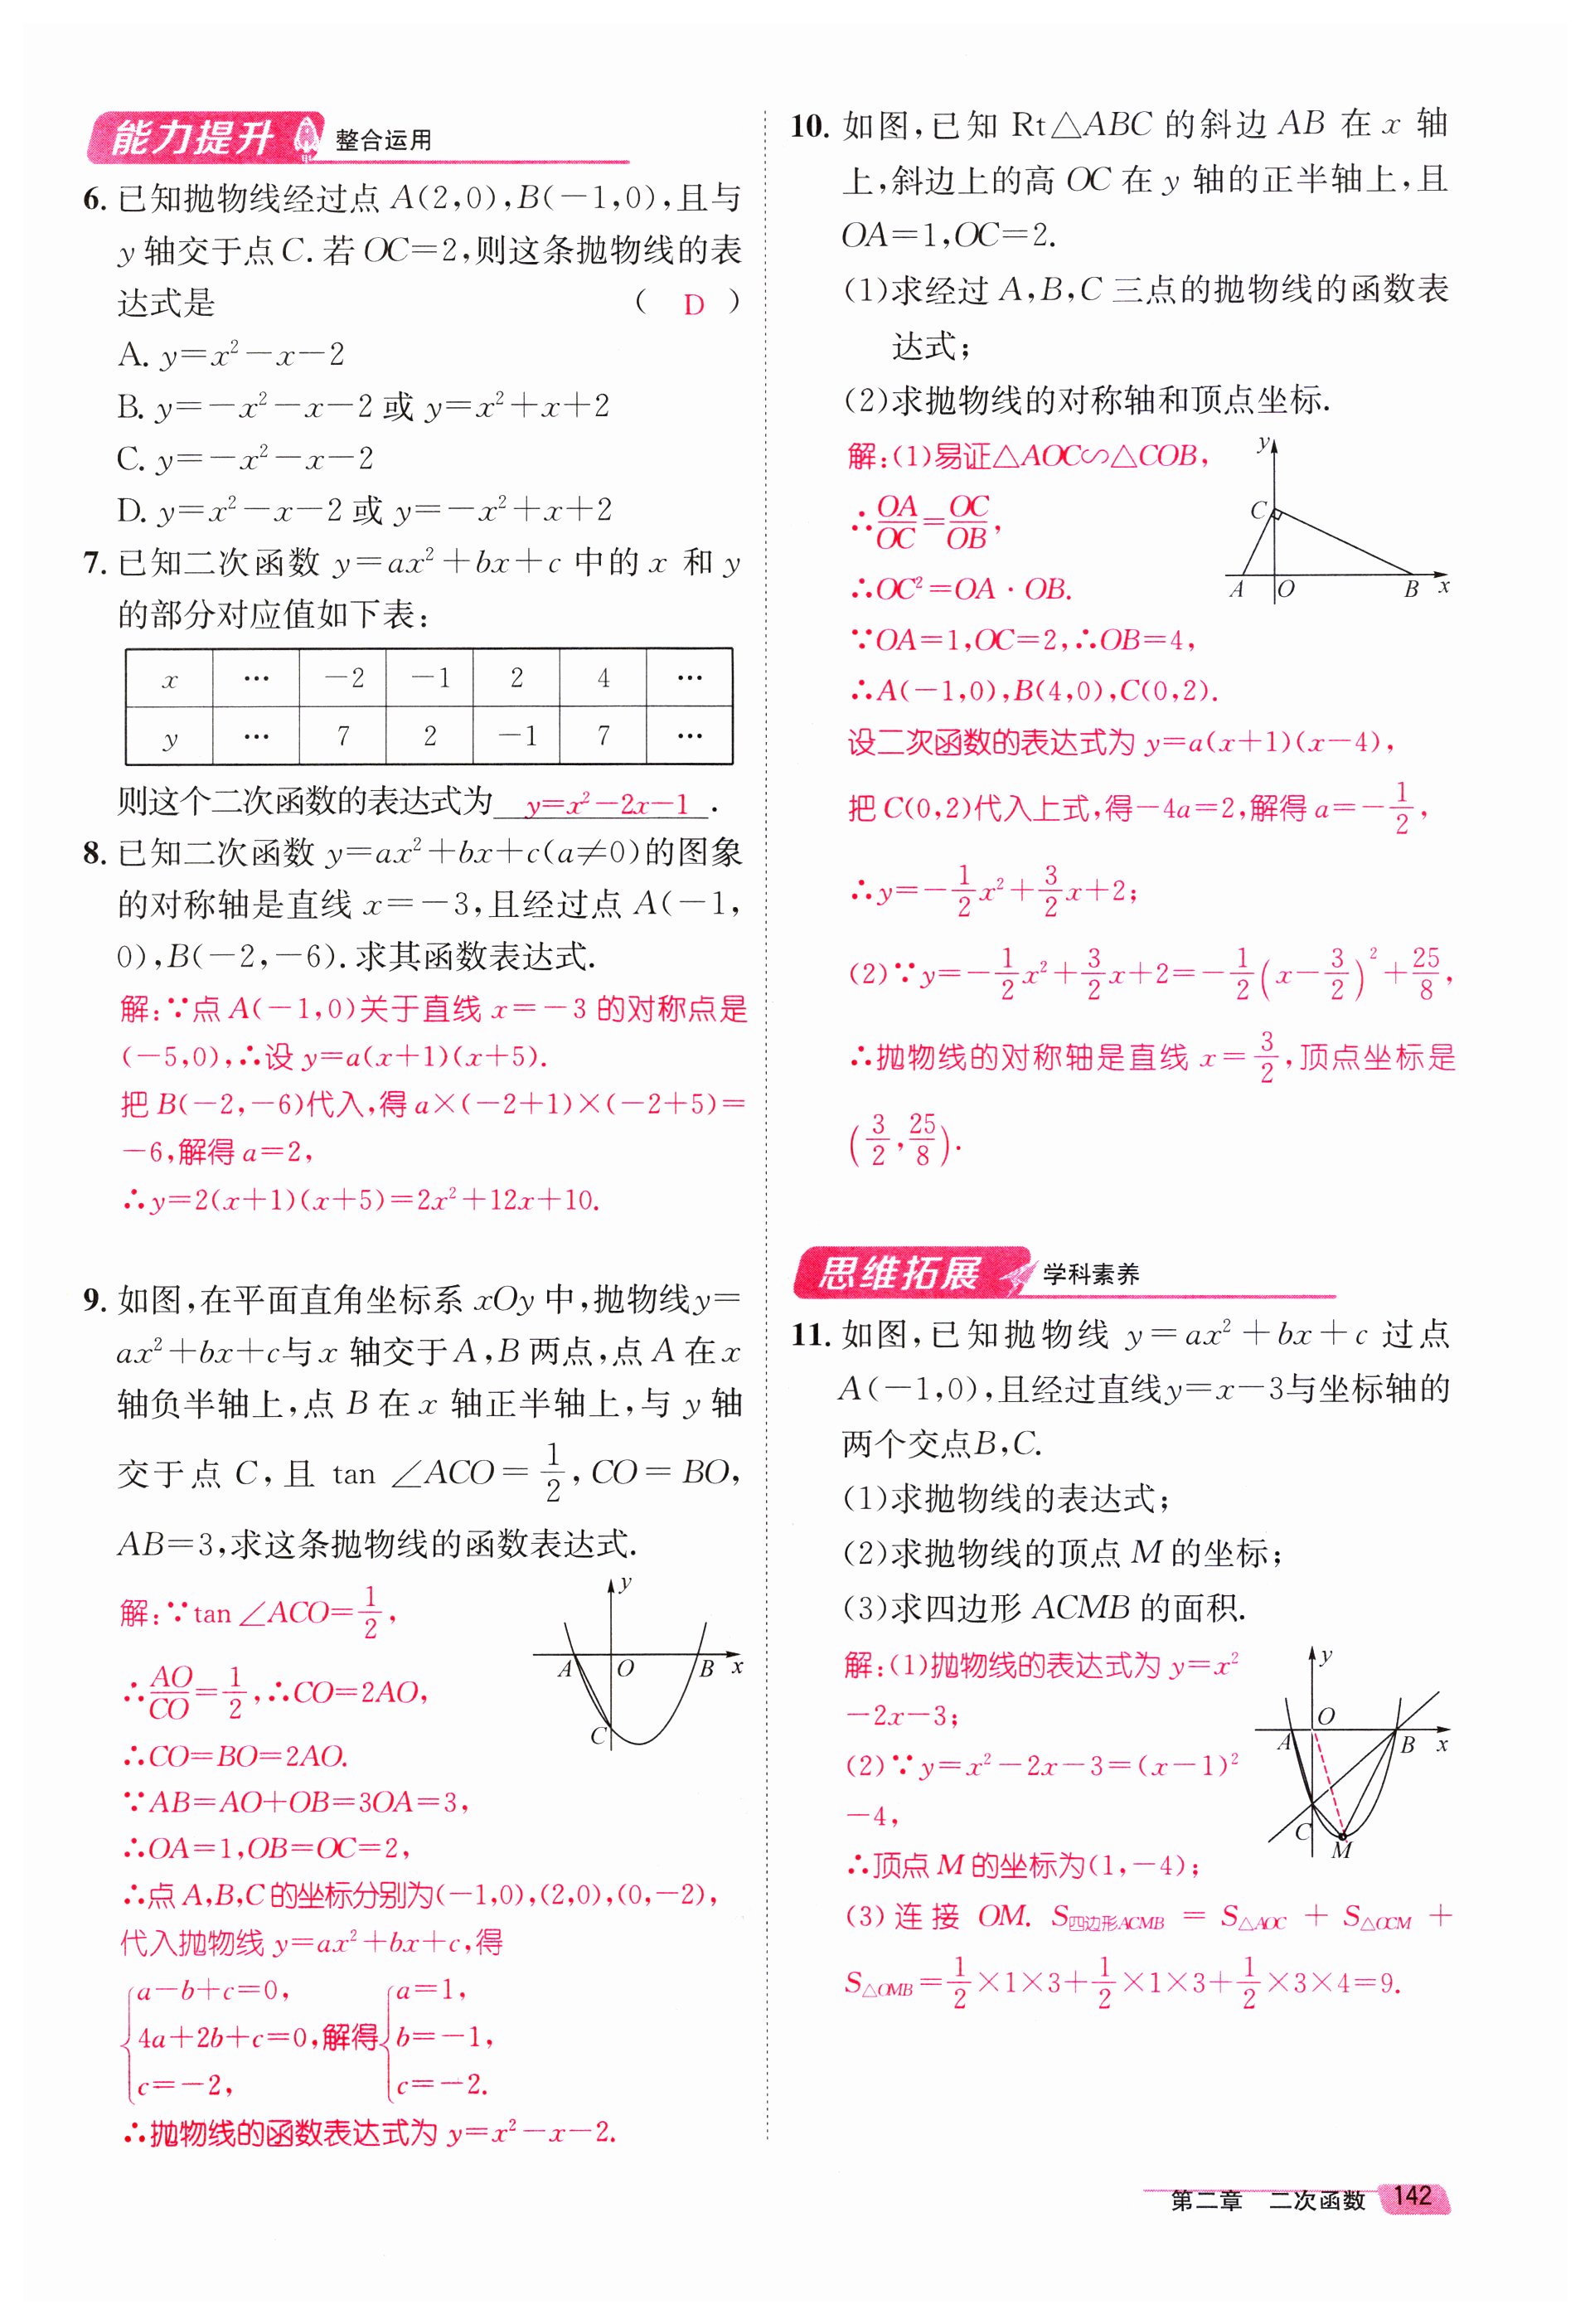 能力提升 整合运用
6. 已知抛物线经过点 A(2,0),B(-1,0),且与
y 轴交于点 C. 若 OC=2,则这条抛物线的表
达式是 ( D )
A. y=x²-x-2
B. y=-x²-x-2 或 y=x²+x+2
C. y=-x²-x-2
D. y=x²-x-2 或 y=-x²+x+2
7. 已知二次函数 y=ax²+bx+c 中的 x 和 y
的部分对应值如下表:
x … -2 -1 2 4 …
y … 7 2 -1 7 …
则这个二次函数的表达式为 y=x²-2x-1 .
8. 已知二次函数 y=ax²+bx+c(a≠0)的图象
的对称轴是直线 x=-3,且经过点 A(-1,
0),B(-2,-6). 求其函数表达式.
解:∵点 A(-1,0)关于直线 x=-3 的对称点是
(-5,0),∴设 y=a(x+1)(x+5).
把 B(-2,-6)代入,得 a×(-2+1)×(-2+5)=
-6,解得 a=2,
∴y=2(x+1)(x+5)=2x²+12x+10.
9. 如图,在平面直角坐标系 xOy 中,抛物线y=
ax²+bx+c与 x 轴交于 A,B 两点,点 A 在 x
轴负半轴上,点 B 在 x 轴正半轴上,与 y 轴
交于点 C,且 tan ∠ACO=1/2,CO=BO,
AB=3,求这条抛物线的函数表达式.
解:∵tan∠ACO=1/2,
∴AO/CO=1/2,∴CO=2AO,
∴CO=BO=2AO.
∵AB=AO+OB=3OA=3,
∴OA=1,OB=OC=2,
∴点 A,B,C 的坐标分别为(-1,0),(2,0),(0,-2),
代入抛物线 y=ax²+bx+c,得
a-b+c=0, a=1,
4a+2b+c=0,解得 b=-1,
c=-2, c=-2.
∴抛物线的函数表达式为 y=x²-x-2.
y
A O B x
C
10. 如图,已知 Rt△ABC 的斜边 AB 在 x 轴
上,斜边上的高 OC 在 y 轴的正半轴上,且
OA=1,OC=2.
(1)求经过 A,B,C 三点的抛物线的函数表
达式;
(2)求抛物线的对称轴和顶点坐标.
解:(1)易证△AOC∽△COB,
∴OA/OC=OC/OB,
∴OC²=OA·OB.
∵OA=1,OC=2,∴OB=4,
∴A(-1,0),B(4,0),C(0,2).
设二次函数的表达式为 y=a(x+1)(x-4),
把 C(0,2)代入上式,得-4a=2,解得 a=-1/2,
∴y=-1/2x²+3/2x+2;
(2)∵y=-1/2x²+3/2x+2=-1/2(x-3/2)²+25/8,
∴抛物线的对称轴是直线 x=3/2,顶点坐标是
(3/2,25/8).
y
C
A O B x
思维拓展 学科素养
11. 如图,已知抛物线 y=ax²+bx+c 过点
A(-1,0),且经过直线y=x-3与坐标轴的
两个交点B,C.
(1)求抛物线的表达式;
(2)求抛物线的顶点 M 的坐标;
(3)求四边形 ACMB 的面积.
解:(1)抛物线的表达式为 y=x²
-2x-3;
(2)∵y=x²-2x-3=(x-1)²
-4,
∴顶点 M 的坐标为(1,-4);
(3)连接 OM. S四边形ACMB = S△AOC + S△OCM +
S△OMB=1/2×1×3+1/2×1×3+1/2×3×4=9.
y
O
A B x
C
M
第二章 二次函数 142